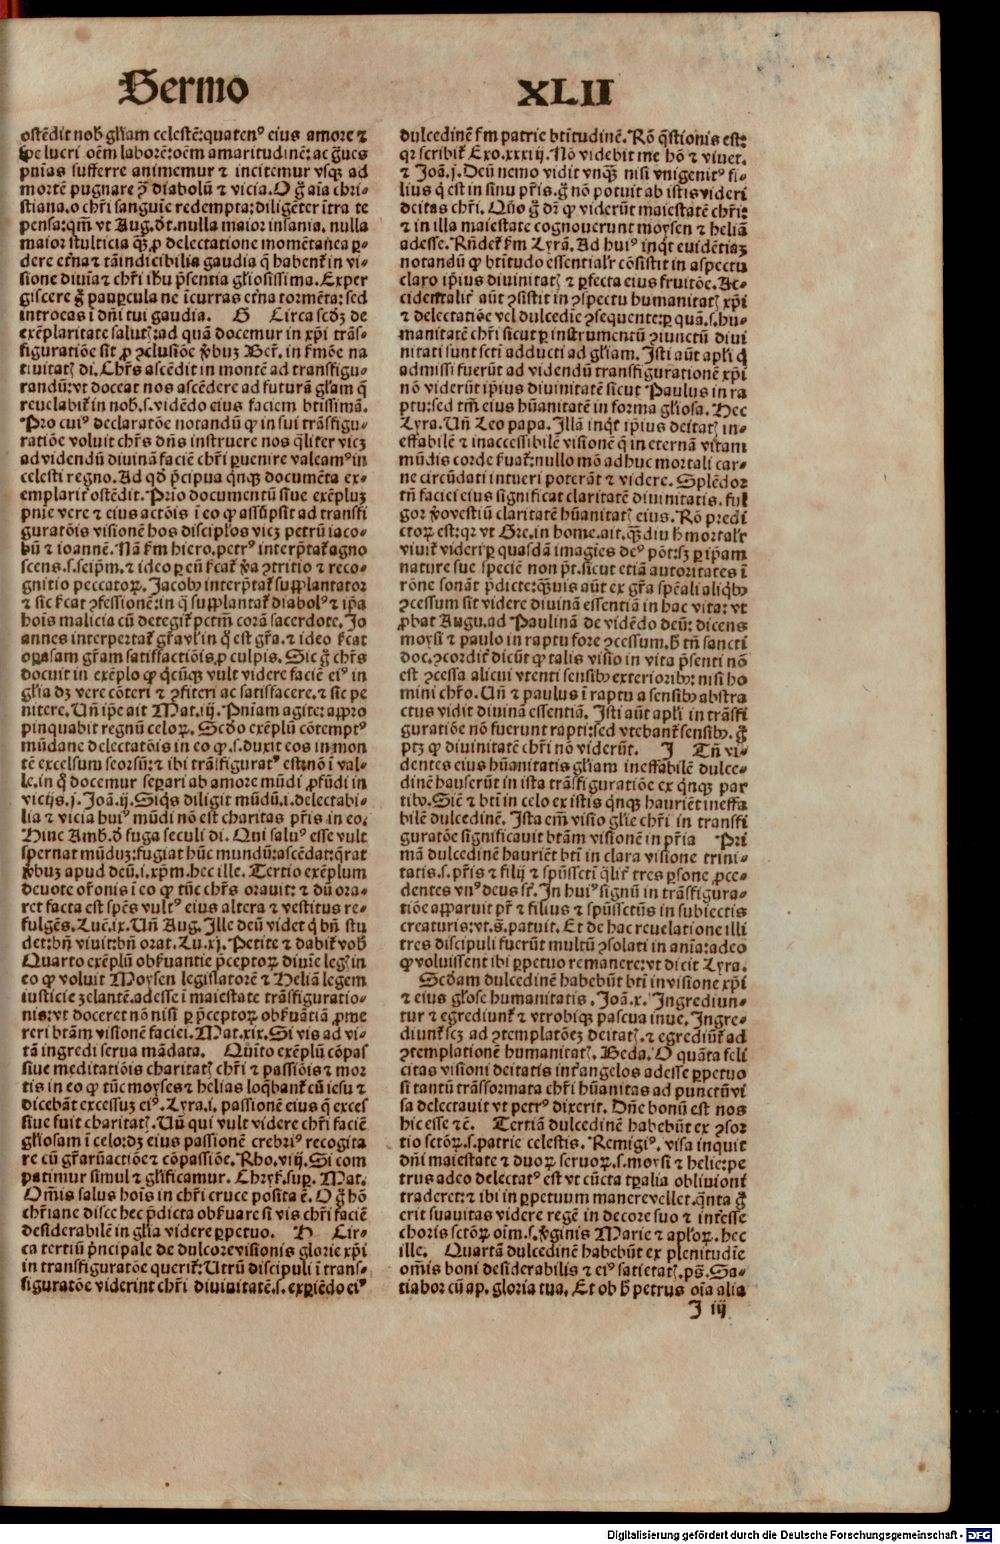 Sermo XLII
ostēdit nob̄ gl'iam celestē: quatenꝰ eius amore ⁊
spe lucri oēm laborē: oēm amaritudinē: ac g̃ues
pnīas sufferre animemur ⁊ incitemur vsqꝫ ad
mortē pugnare ꝯ̃ diabolū ⁊ vicia. O g̃ aīa chri-
stiana. o chr̄i sanguīe redempta: diligēter ītra te
pensa: qm̄ vt Aug. dt. nulla maior insania. nulla
maior stulticia qꝫ̃ ꝓ delectatione momētanea ꝑ-
dere et̄na ⁊ tā indicibilia gaudia q̄ habent᷑ in vi-
sione diuīa ⁊ chr̄i ih̄u p̄sentia gl'iosissima. Exper
giscere g̃ pauꝑcula ne īcurras et̄na tormēta: sed
introeas ī dn̄i tui gaudia. G Circa scd̄ꝫ de
exēplaritate salutꝭ: ad quā docemur in xp̄i trās-
figuratiōe sit ꝓ ꝯclusiōe v̄buꝫ Ber̄. in s̄mōe na
tiuitatꝭ di. Chr̄s ascēdit in montē ad transfigu-
randū: vt doceat nos ascēdere ad futurā gl'am q̄
reuelabit᷑ in nob̄. s. vidēdo eius faciem btīssimā.
Pro cuiꝰ declaratōe notandū ꝙ in sui trāsfigu-
ratiōe voluit chr̄s dn̄s instruere nos q̄liter vicꝫ
ad videndū diuinā faciē chr̄i ꝑuenire valeamꝰ in
celesti regno. Ad qd̄ p̄cipua q̄nqꝫ documēta ex-
emplarit᷑ ostēdit. Prīo documentū siue exēpluꝫ
pnīe vere ⁊ eius actōis ī eo ꝙ assūpsit ad transfi
guratōis visionē hos discip'los vicꝫ petrū iaco-
bū ⁊ ioannē. Nā s̄m hiero. petrꝰ interp̄tat᷑ agno
scens. s. seip̄m. ⁊ ideo ꝑ eū s̄cat᷑ v̄a ꝯtritio ⁊ reco-
gnitio peccatoꝝ. Jacobꝰ interp̄tat᷑ supplantator
⁊ sic s̄cat ꝯfessionē: in q̄ supplantat᷑ diabolꝰ ⁊ ip̄a
hoīs malicia cū detegit᷑ pctm̄ corā sacerdote. Jo
annes interpertat᷑ gr̄a vl' in q̄ est gr̄a. ⁊ ideo s̄cat
oꝑosam gr̄am satisfactiōis ꝓ culpis. Sic g̃ chr̄s
docuit in exēplo ꝙ q̄cūqꝫ vult videre faciē eiꝰ in
gl'ia dꝫ vere cōteri ⁊ ꝯfiteri ac satisfacere. ⁊ sic pe
nitere. Uñ ip̄e ait Mat. iij. Pnīam agite: appro
pinquabit regnū celoꝝ. Scd̄o exēplū cōtemptꝰ
mūdane delectatōis in eo ꝙ. s. duxit eos in mon
tē excelsum seorsū: ⁊ ibi trāsfiguratꝰ est: nō ī val-
le. in q̄ docemur sep̄ari ab amore mūdi ꝓfūdi in
vicijs. j. Joā. ij. Siq̄s diligit mūdū. i. delectabi-
lia ⁊ vicia huiꝰ mūdi nō est charitas pr̄is in eo.
Hinc Amb. d̄ fuga seculi di. Qui saluꝰ esse vult
spernat mūduꝫ: fugiat hūc mundū: ascēdat: q̄rat
v̄buꝫ apud deū. i. xp̄m. hec ille. Tertio exēplum
deuote or̄onis ī eo ꝙ tūc chr̄s orauit: ⁊ dū ora-
ret facta est sp̄es vultꝰ eius altera ⁊ vestitus re-
fulgēs. Luē. ix. Uñ Aug. Ille deū videt q̄ bn̄ stu
det: bn̄ viuit: bn̄ orat. Lu. xj. Petite ⁊ dabit᷑ vob̄
Quarto exēplū obs̄uantie p̄ceptoꝝ diuīe legꝭ in
eo ꝙ voluit Moysen legislatorē ⁊ Heliā legem
iusticie zelantē. adesse ī maiestate trāsfiguratio-
nis: vt doceret nō nisi ꝑ p̄ceptoꝝ obs̄uātiā ꝓme
reri btām visionē faciei. Mat. xix. Si vis ad vi-
tā ingredi serua mādata. Quīto exēplū cōpas
siue meditatiōis charitatꝭ chr̄i ⁊ passiōis ⁊ mor
tis in eo ꝙ tūc moyses ⁊ helias loq̄bant᷑ cū iesu ⁊
dicebāt excessuꝫ eiꝰ. Lyra. i. passionē eius q̄ exces
siue fuit charitatꝭ. Uñ qui vult videre chr̄i faciē
gl'iosam ī celo: dꝫ eius passionē crebriꝰ recogita
re cū gr̄aꝝ actiōe ⁊ cōpassiōe. Rho. viij. Si com
patimur simul ⁊ gl'ificamur. Chrys̄. suꝑ. Mat.
Om̄is salus hoīs in chr̄i cruce posita ē. O g̃ hō
chr̄iane disce hec p̄dicta obs̄uare si vis chr̄i faciē
desiderabilē in gl'ia videre ꝑpetuo. H Cir-
ca tertiū p̄ncipale de dulcore visionis glorie xp̄i
in transfiguratōe querit᷑: Utrū discipuli ī trans-
figuratōe viderint chr̄i diuinitatē. s. expiēdo eiꝰ
dulcedinē s̄m patrie btītudinē. Rō q̄stionis est:
qꝛ scribit᷑ Exo. xxxiij. Nō videbit me hō ⁊ viuet.
⁊ Joā. j. Deū nemo vidit vnq̄ꝫ nisi vnigenitꝰ fi-
lius q̄ est in sinu pr̄is. g̃ nō potuit ab istis videri
deitas chr̄i. Qūo g̃ dr̄ ꝙ viderūt maiestatē chr̄i:
⁊ in illa maiestate cognouerunt moysen ⁊ heliā
adesse. Rn̄det᷑ s̄m Lyrā. Ad huiꝰ inq̄t euidētiaꝫ
notandū ꝙ btītudo essentialr̄ cōsistit in aspectu
claro ip̄ius diuinitatꝭ ⁊ ꝑfecta eius fruitōe. Ac-
cidentalit᷑ aūt ꝯsistit in ꝯspectu humanitatꝭ xp̄i
⁊ delectatiōe vel dulcedīe ꝯsequente: ꝑ quā. s. hu-
manitatē chr̄i sicut ꝑ instrumentū ꝯiunctū diui
nitati sunt sctī adducti ad gl'iam. Isti aūt apl'i q̄
admissi fuerūt ad videndū transfigurationē xp̄i
nō viderūt ip̄ius diuinitatē sicut Paulus in ra
ptu: sed tm̄ eius hūanitatē in forma gl'iosa. Hec
Lyra. Uñ Leo papa. Illā inq̄t ip̄ius deitatꝭ in-
effabilē ⁊ inaccessibilē visionē q̄ in eternā vitam
mūdis corde s̄uat᷑: nullo mō adhuc mortali car-
ne circūdati intueri poterāt ⁊ videre. Splēdor
tn̄ faciei eius significat claritatē diuinitatis. ful
gor v̄o vestiū claritatē hūanitatꝭ eius. Rō predi
ctoꝝ est: qꝛ vt Gre. in home. ait. q̄ꝫdiu h̄ mortalr̄
viuit᷑ videri ꝑ quasdā imagīes deꝰ pōt: sꝫ ꝑ ip̄am
nature sue speciē non pt̄. sicut etiā autoritates ī
rōne sonāt p̄dicte: q̄ꝫuis aūt ex gr̄a sp̄eali aliq̄bꝰ
ꝯcessum sit videre diuinā essentiā in hac vita: vt
ꝓbat Augu. ad Paulinā de vidēdo deū: dicens
moysi ⁊ paulo in raptu fore ꝯcessum. h̄ tn̄ sancti
doc. ꝯcordit᷑ dicūt ꝙ talis visio in vita p̄senti nō
est ꝯcessa alicui vtenti sensibꝰ exterioribꝰ: nisi ho
mini chr̄o. Uñ ⁊ paulus ī raptu a sensibꝰ abstra
ctus vidit diuinā essentiā. Isti aūt apl'i in trāsfi
guratiōe nō fuerunt rapti: sed vtebant᷑ sensibꝰ. g̃
ptꝫ ꝙ diuinitatē chr̄i nō viderūt. I Tn̄ vi-
dentes eius hūanitatis gl'iam ineffabilē dulce-
dinē hauserūt in ista trāsfiguratiōe ex q̄nqꝫ par
tibꝰ. Sicut ⁊ btī in celo ex istis q̄nqꝫ hauriēt ineffa
bilē dulcedinē. Ista em̄ visio gl'ie chr̄i in transfi
guratōe significauit btām visionē in pr̄ia Pri
mā dulcedinē hauriēt btī in clara visione trini-
tatis. s. pr̄is ⁊ filij ⁊ sp̄usscti q̄lit᷑ tres ꝑsone ꝓce-
dentes vnꝰ deus st̄. In huiꝰ signū in trāsfigura-
tiōe apparuit pr̄ ⁊ filius ⁊ sp̄ussctūs in subiectis
creaturis: vt. s̄. patuit. Et de hac reuelatione illi
tres discipuli fuerūt multū ꝯsolati in aīa: adeo
ꝙ voluissent ibi ꝑpetuo remanere: vt dicit Lyra.
Scd̄am dulcedinē habebūt btī in visione xp̄i
⁊ eius gl'ose humanitatis. Joā. x. Ingrediun-
tur ⁊ egrediunt᷑ ⁊ vtrobiqꝫ pascua inue. Ingre-
diunt᷑ scꝫ ad ꝯtemplatōeꝫ deitatꝭ. ⁊ egrediūt᷑ ad
ꝯtemplationē humanitatꝭ. Beda. O quāta feli
citas visioni deitatis int᷑ angelos adesse ꝑpetuo
si tantū trāsformata chr̄i hūanitas ad punctū vi
sa delectauit vt petrꝰ dixerit. Dn̄e bonū est nos
hic esse ⁊c̄. Tertiā dulcedinē habebūt ex ꝯsor
tio sctōꝝ. s. patrie celestis. Remigiꝰ. visa inquit
dn̄i maiestate ⁊ duoꝝ seruoꝝ. s. moysi ⁊ helie: pe
trus adeo delectatꝰ est vt cūcta tꝑalia obliuioni
traderet: ⁊ ibi in ꝑpetuum manere vellet. q̄nta g̃
erit suauitas videre regē in decore suo ⁊ int᷑esse
choris sctōꝝ oīm. s. v̄ginis Marie ⁊ apl'oꝝ. hec
ille. Quartā dulcedinē habebūt ex plenitudīe
om̄is boni desiderabilis ⁊ eiꝰ satietatꝭ. pš. Sa-
tiabor cū ap. gloria tua. Et ob h̄ petrus oīa alia
I iij
Digitalisierung gefördert durch die Deutsche Forschungsgemeinschaft - DFG